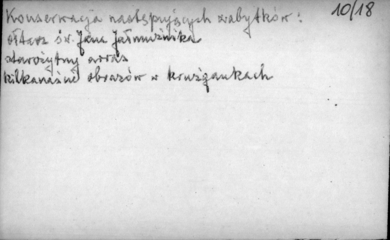 Konserwacja następujących zabytków: 10/18
ołtarz św. Jana Jałmużnika
starożytny arras
kilkanaście obrazów w krużgankach